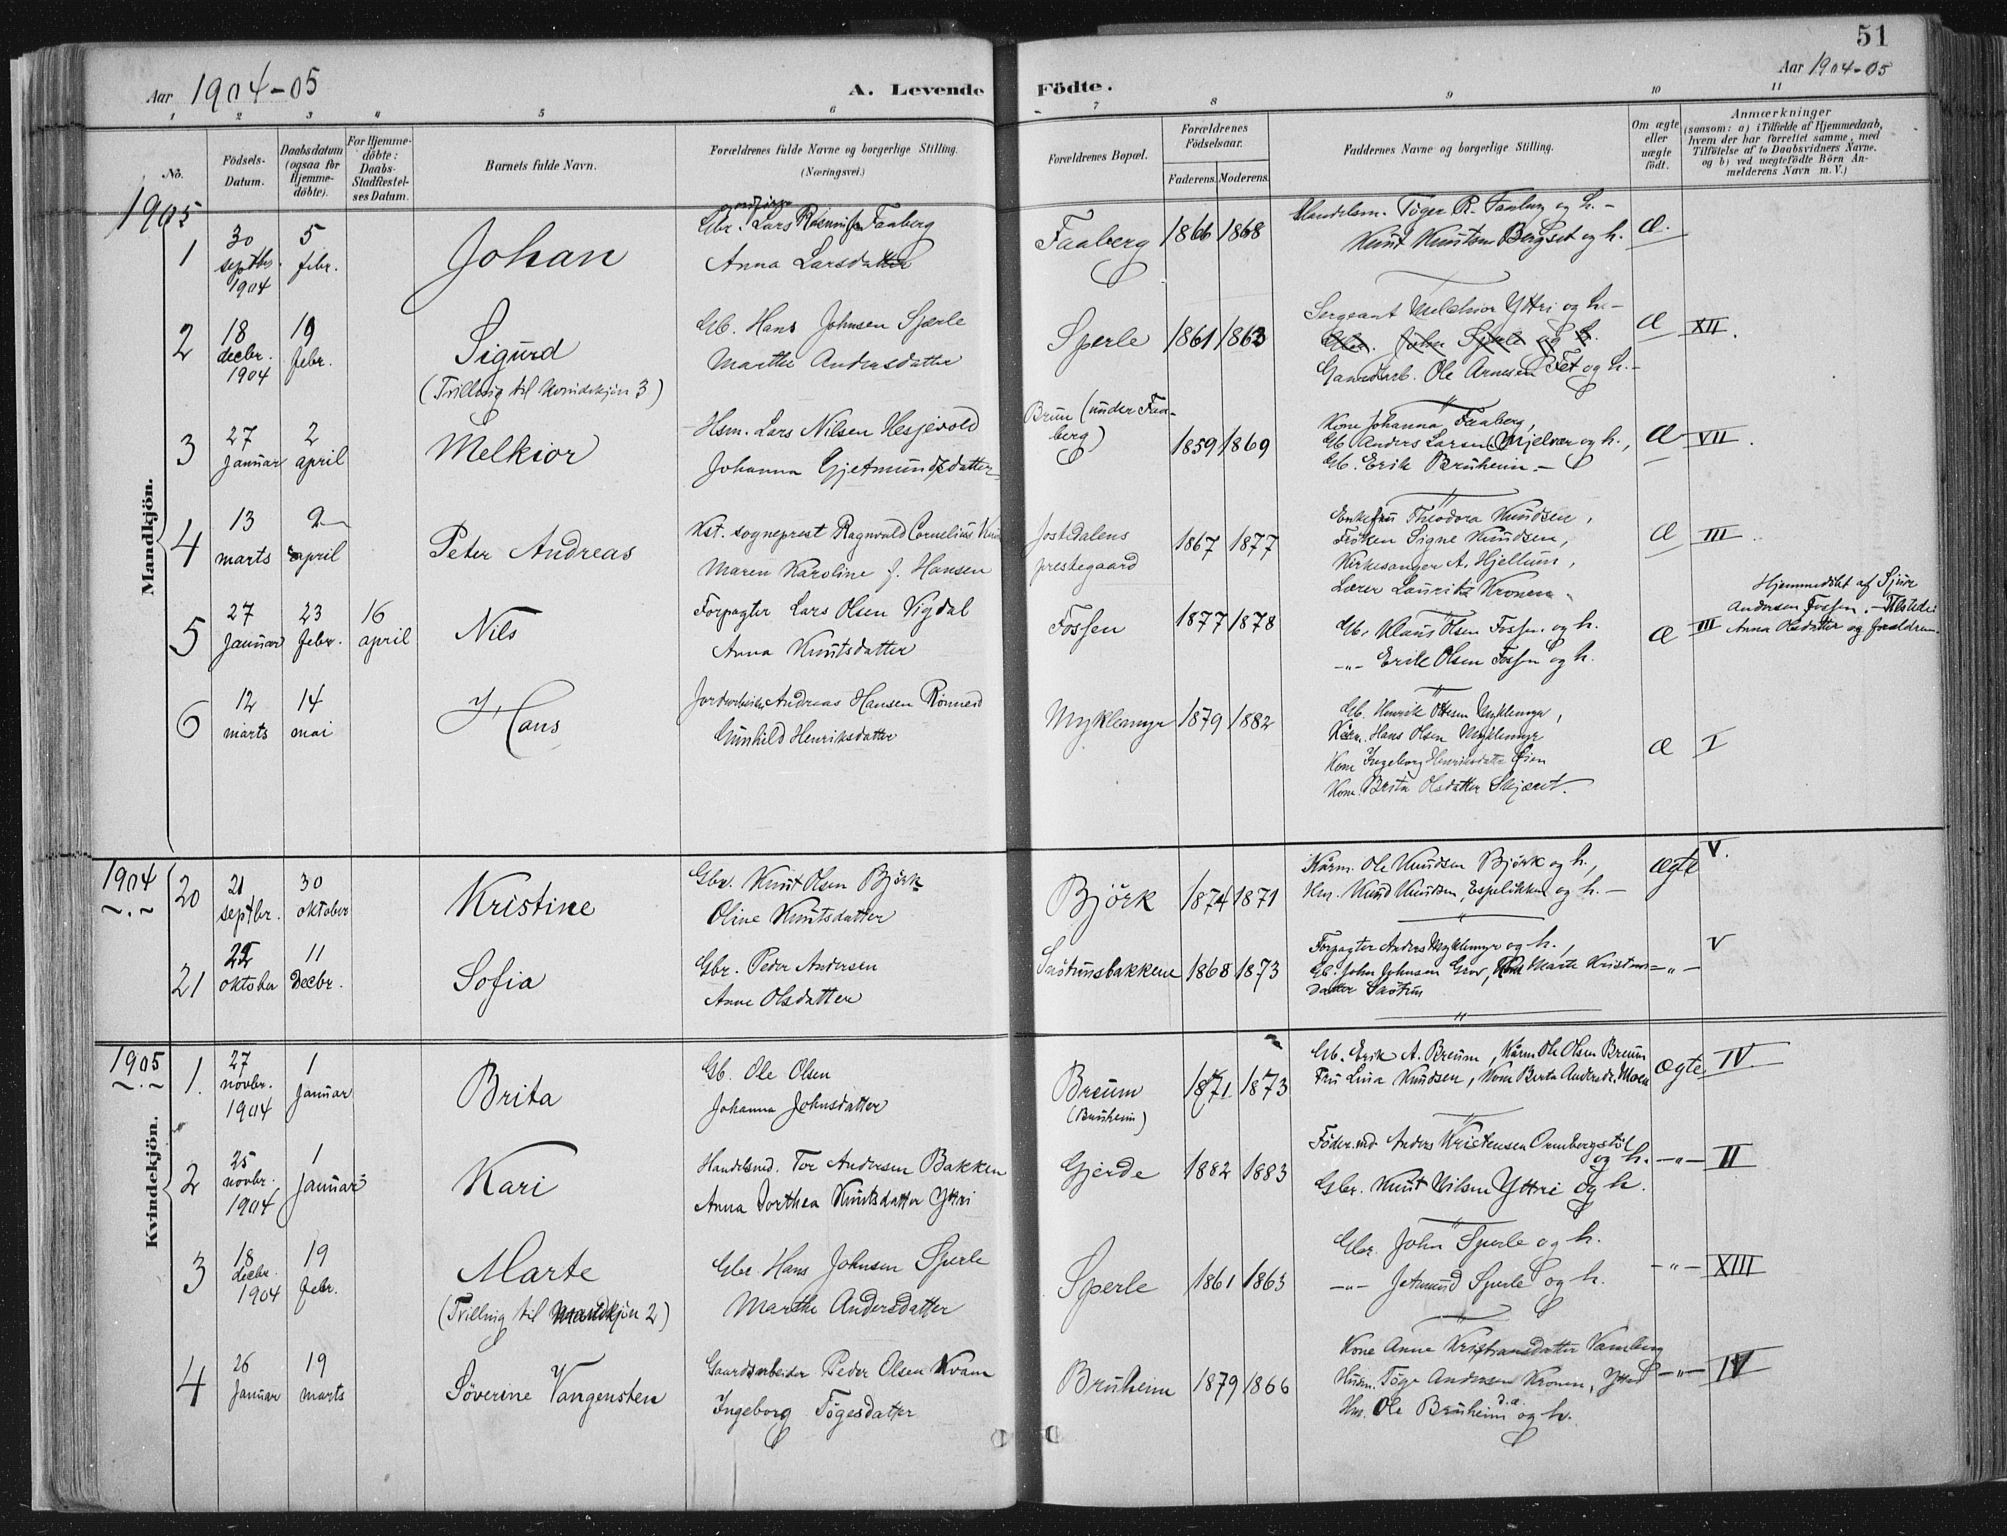 51
Aar 1904-05
A. Levende Födte.
Aar 1904-05
1 2 3 4 5 6 7 8 9 10 11
No.
Födsels-Datum.
Daabsdatum (ogsaa for Hjemme-döbte).
For Hjemme-döbte: Daabs-Stadfestel-ses Datum.
Barnets fulde Navn.
Forældrenes fulde Navne og borgerlige Stilling. (Næringsvei.)
Forældrenes Bopæl.
Forældrenes Födselsaar.
Faderens. Moderens.
Faddernes Navne og borgerlige Stilling.
Om ægte eller uægte födt.
Anmærkninger
(saasom: a) i Tilfælde af Hjemmedaab, hvem der har forrettet samme, med Tilföielse af to Daabsvidners Navne, og b) ved uægtefödte Börn An-melderens Navn m. V.)
Mandkjön.
1905
1
30 septbr. 1904
5 febr.
Johan
Gbr. Lars Rasmussen Faaberg
Anna Larsdatter
Faaberg
1866 1868
Handelsm. Töger R. Faaberg og h. -
Knut Knutsen Bergset og h.
Æ.
2
18 decbr. 1904
19 febr.
Sigurd
(Tvilling til Kvindekjön 3)
Gb. Hans Johnsen Sperle
Marthe Andersdatter
Sperle
1861 1863
Sergeant Melchior Yttri og h. -
Gbr. John Sperle og h.
Gaardarb. Ole Arnesen Fet og h. -
Æ
XII.
3
27 januar
2 april
Melkior
Hsm. Lars Nilsen Hesjevold
Johanna Gjetmundsdatter
Brun (under Faa-
berg)
1859 1869
Kone Johanna Faaberg,
Gb. Anders Larsen Mjelvær og h.,
Gb. Erik Bruheim. -
Æ
VII.
4
13 marts
2 april
Peter Andreas
Kst. sogneprest Ragnvald Cornelius
Maren Karoline f. Hansen
Jostedalens
prestegaard
1867 1877
Enkefru Theodora Knudsen,
Fröken Signe Knudsen,
Kirkesanger A. Hjellum,
Lærer Lauritz Kronen.
Æ
III.
5
27 Januar
23 febr.
16 april
Nils
Forpagter Lars Olsen Vigdal
Anna Knutsdatter
Fossen
1877 1878
Gb. Klaus Olsen Fossen og h.
-"- Erik Olsen Fossen og h.
Æ
III
Hjemmedöbt af Sjur
Andersen Fossen. - Tilstede:
Anna Olsdatter og forældrene.
6
12 marts
14 mai
Hans
Jordarbeider Andreas Hansen Rönneid
Gunhild Henriksdatter
Myklemyr
1879 1882
Gb. Henrik Ottesen Myklemyr,
Kårm. Hans Olsen Myklemyr
Kone Ingeborg Henriksdatter Öien
Kone. Brita Olsdatter Skjæret.
Æ
I
1904
20
21 septbr.
30 oktober
Kristine
Gbr. Knut Olsen Björk
Oline Knutsdatter
Björk
1874 1871
Kårm. Ole Knudsen Björk og h.,
Hm. Knud Knudsen, Espelikken og h. -
ægte
V.
21
oktober
11 Decbr.
Sofia
Gbr. Peder Andersen
Anne Olsdatter
Snetunsbakkene
1868 1873
Forpagter Anders Myklemyr og h.,
Gb. John Johnsen Grov, Kone Marte Kristens-
datter
-"-
V
Kvindekjön.
1905
1.
27 novbr. 1904
1 Januar
Brita
Gb. Ole Olsen
Johanna Johnsdatter
Breum
(Bruheim)
1871 1873
Gb. Erik A. Breum, Kårm Ole Olsen Breum
Fru Lina Knudsen, Kone Berta Andersdr. Moen
ægte
IV.
2
25 novbr. 1904
1 Januar
Kari
Handelsmd. Tor Andersen Bakken
Anna Dorthea Knutsdatter Yttri
Gjerde
1882 1883
Föder.md. Anders Kristensen Ormbergstöl
og h.
Gbr. Knut Nilsen Yttri og h.
-"-
II
3
18 decbr. 1904
19 febr.
Marte
(Tvilling til Mandkjön 2)
Gbr. Hans Johnsen Sperle
Marthe Andersdatter
Sperle
1861 1863
Gbr. John Sperle og h.
-"- Jetmund Sperle og h.
-"-
XIII
4
26 Januar
19 marts
Söverine Vangensten
Gaardsarbeider Peder Olsen Kvam
Ingeborg Tögesdatter
Bruheim
1879 1866
Kone Anne Kristiansdatter Vanberg
Husm. Töge Andersen Kronen, Yttri
Hm. Ole Bruheim d.a. og h.
-"-
IV